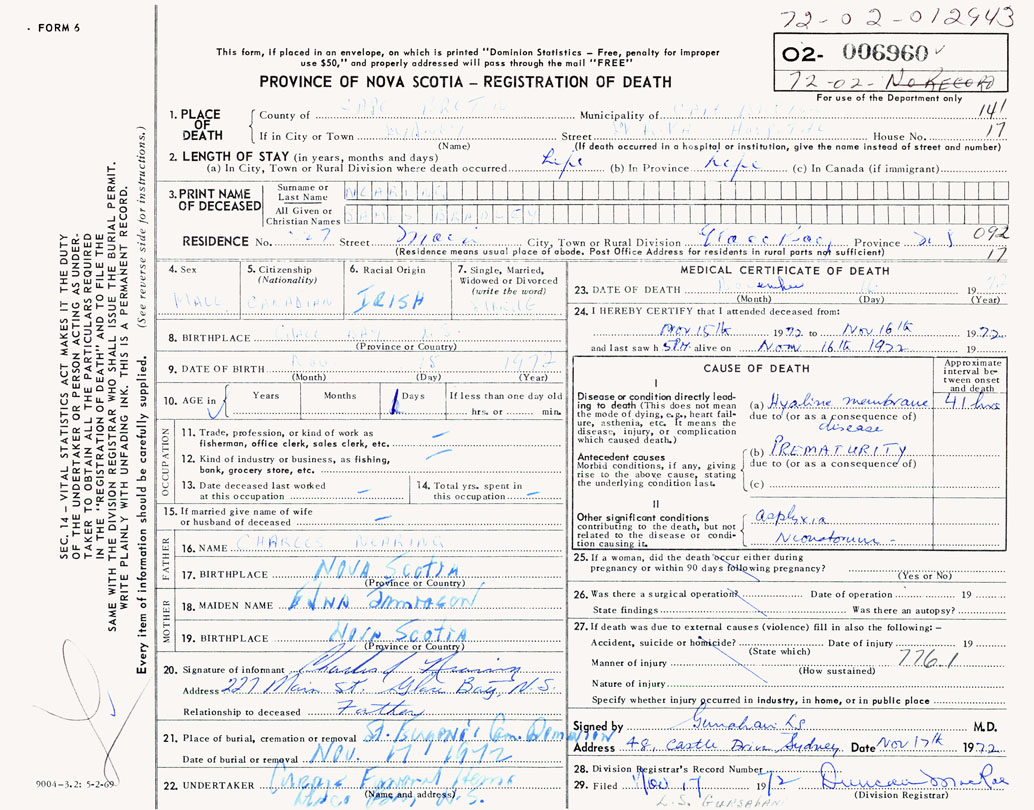 FORM 6
72-02-012943
02- 006960
72-02- No RECORD
For use of the Department only
This form, if placed in an envelope, on which is printed "Dominion Statistics – Free, penalty for improper
use $50," and properly addressed will pass through the mail "FREE"
PROVINCE OF NOVA SCOTIA – REGISTRATION OF DEATH
SEC. 14 – VITAL STATISTICS ACT MAKES IT THE DUTY
OF THE UNDERTAKER OR PERSON ACTING AS UNDER-
TAKER TO OBTAIN ALL THE PARTICULARS REQUIRED
IN THE "REGISTRATION OF DEATH" AND TO FILE THE
SAME WITH THE DIVISION REGISTRAR WHO SHALL ISSUE THE BURIAL PERMIT.
WRITE PLAINLY WITH UNFADING INK. THIS IS A PERMANENT RECORD.
Every item of information should be carefully supplied. (See reverse side for instructions.)
1. PLACE OF DEATH
County of CAPE BRETON Municipality of 141
If in City or Town SYDNEY Street HOSPITAL House No. 17
(Name) (If death occurred in a hospital or institution, give the name instead of street and number)
2. LENGTH OF STAY (in years, months and days)
(a) In City, Town or Rural Division where death occurred Life (b) In Province Life (c) In Canada (if immigrant)
3. PRINT NAME OF DECEASED
Surname or Last Name NEARING
All Given or Christian Names JAMES BRADLEY
RESIDENCE No. 227 Street Main City, Town or Rural Division Glace Bay, Province N.S. 092
(Residence means usual place of abode. Post Office Address for residents in rural parts not sufficient) 17
4. Sex MALE
5. Citizenship (Nationality) CANADIAN
6. Racial Origin IRISH
7. Single, Married, Widowed or Divorced (write the word) SINGLE
8. BIRTHPLACE GLACE BAY N.S.
(Province or Country)
9. DATE OF BIRTH Nov 15 1972
(Month) (Day) (Year)
10. AGE in Years Months 1 Days If less than one day old hrs. or min.
OCCUPATION
11. Trade, profession, or kind of work as fisherman, office clerk, sales clerk, etc. –
12. Kind of industry or business, as fishing, bank, grocery store, etc. –
13. Date deceased last worked at this occupation –
14. Total yrs. spent in this occupation –
15. If married give name of wife or husband of deceased –
FATHER
16. NAME CHARLES NEARING
17. BIRTHPLACE NOVA SCOTIA
(Province or Country)
MOTHER
18. MAIDEN NAME EDNA
19. BIRTHPLACE NOVA SCOTIA
(Province or Country)
20. Signature of informant Charles J Nearing
Address 227 Main St. Glace Bay, N.S.
Relationship to deceased Father
21. Place of burial, cremation or removal St. Eugene's Cem. Dominion
Date of burial or removal NOV. 17 1972
22. UNDERTAKER Funeral Home
(Name and address) N.S.
9004-3.2: 5-2-69
MEDICAL CERTIFICATE OF DEATH
23. DATE OF DEATH November 16 1972
(Month) (Day) (Year)
24. I HEREBY CERTIFY that I attended deceased from:
Nov 15th 1972 to Nov 16th 1972
and last saw h 5PM alive on Nov 16th 1972 19
CAUSE OF DEATH
Approximate interval between onset and death
I
Disease or condition directly lead-
ing to death (This does not mean
the mode of dying, e.g., heart fail-
ure, asthenia, etc. It means the
disease, injury, or complication
which caused death.)
(a) Hyaline membrane 41 hrs
due to (or as a consequence of)
disease
Antecedent causes
Morbid conditions, if any, giving
rise to the above cause, stating
the underlying condition last.
(b) PREMATURITY
due to (or as a consequence of)
(c)
II
Other significant conditions
contributing to the death, but not
related to the disease or condi-
tion causing it.
asphyxia
Neonatorum -
25. If a woman, did the death occur either during
pregnancy or within 90 days following pregnancy?
(Yes or No)
26. Was there a surgical operation? Date of operation 19
State findings Was there an autopsy?
27. If death was due to external causes (violence) fill in also the following: –
Accident, suicide or homicide? Date of injury 19
(State which)
Manner of injury 776.1
(How sustained)
Nature of injury
Specify whether injury occurred in industry, in home, or in public place
Signed by Gunahan LS M.D.
Address 48, Castle Drive, Sydney Date Nov 17th 1972
28. Division Registrar's Record Number
29. Filed Nov 17 1972 Duncan MacRae
(Division Registrar)
L.S. GUNSAHAN